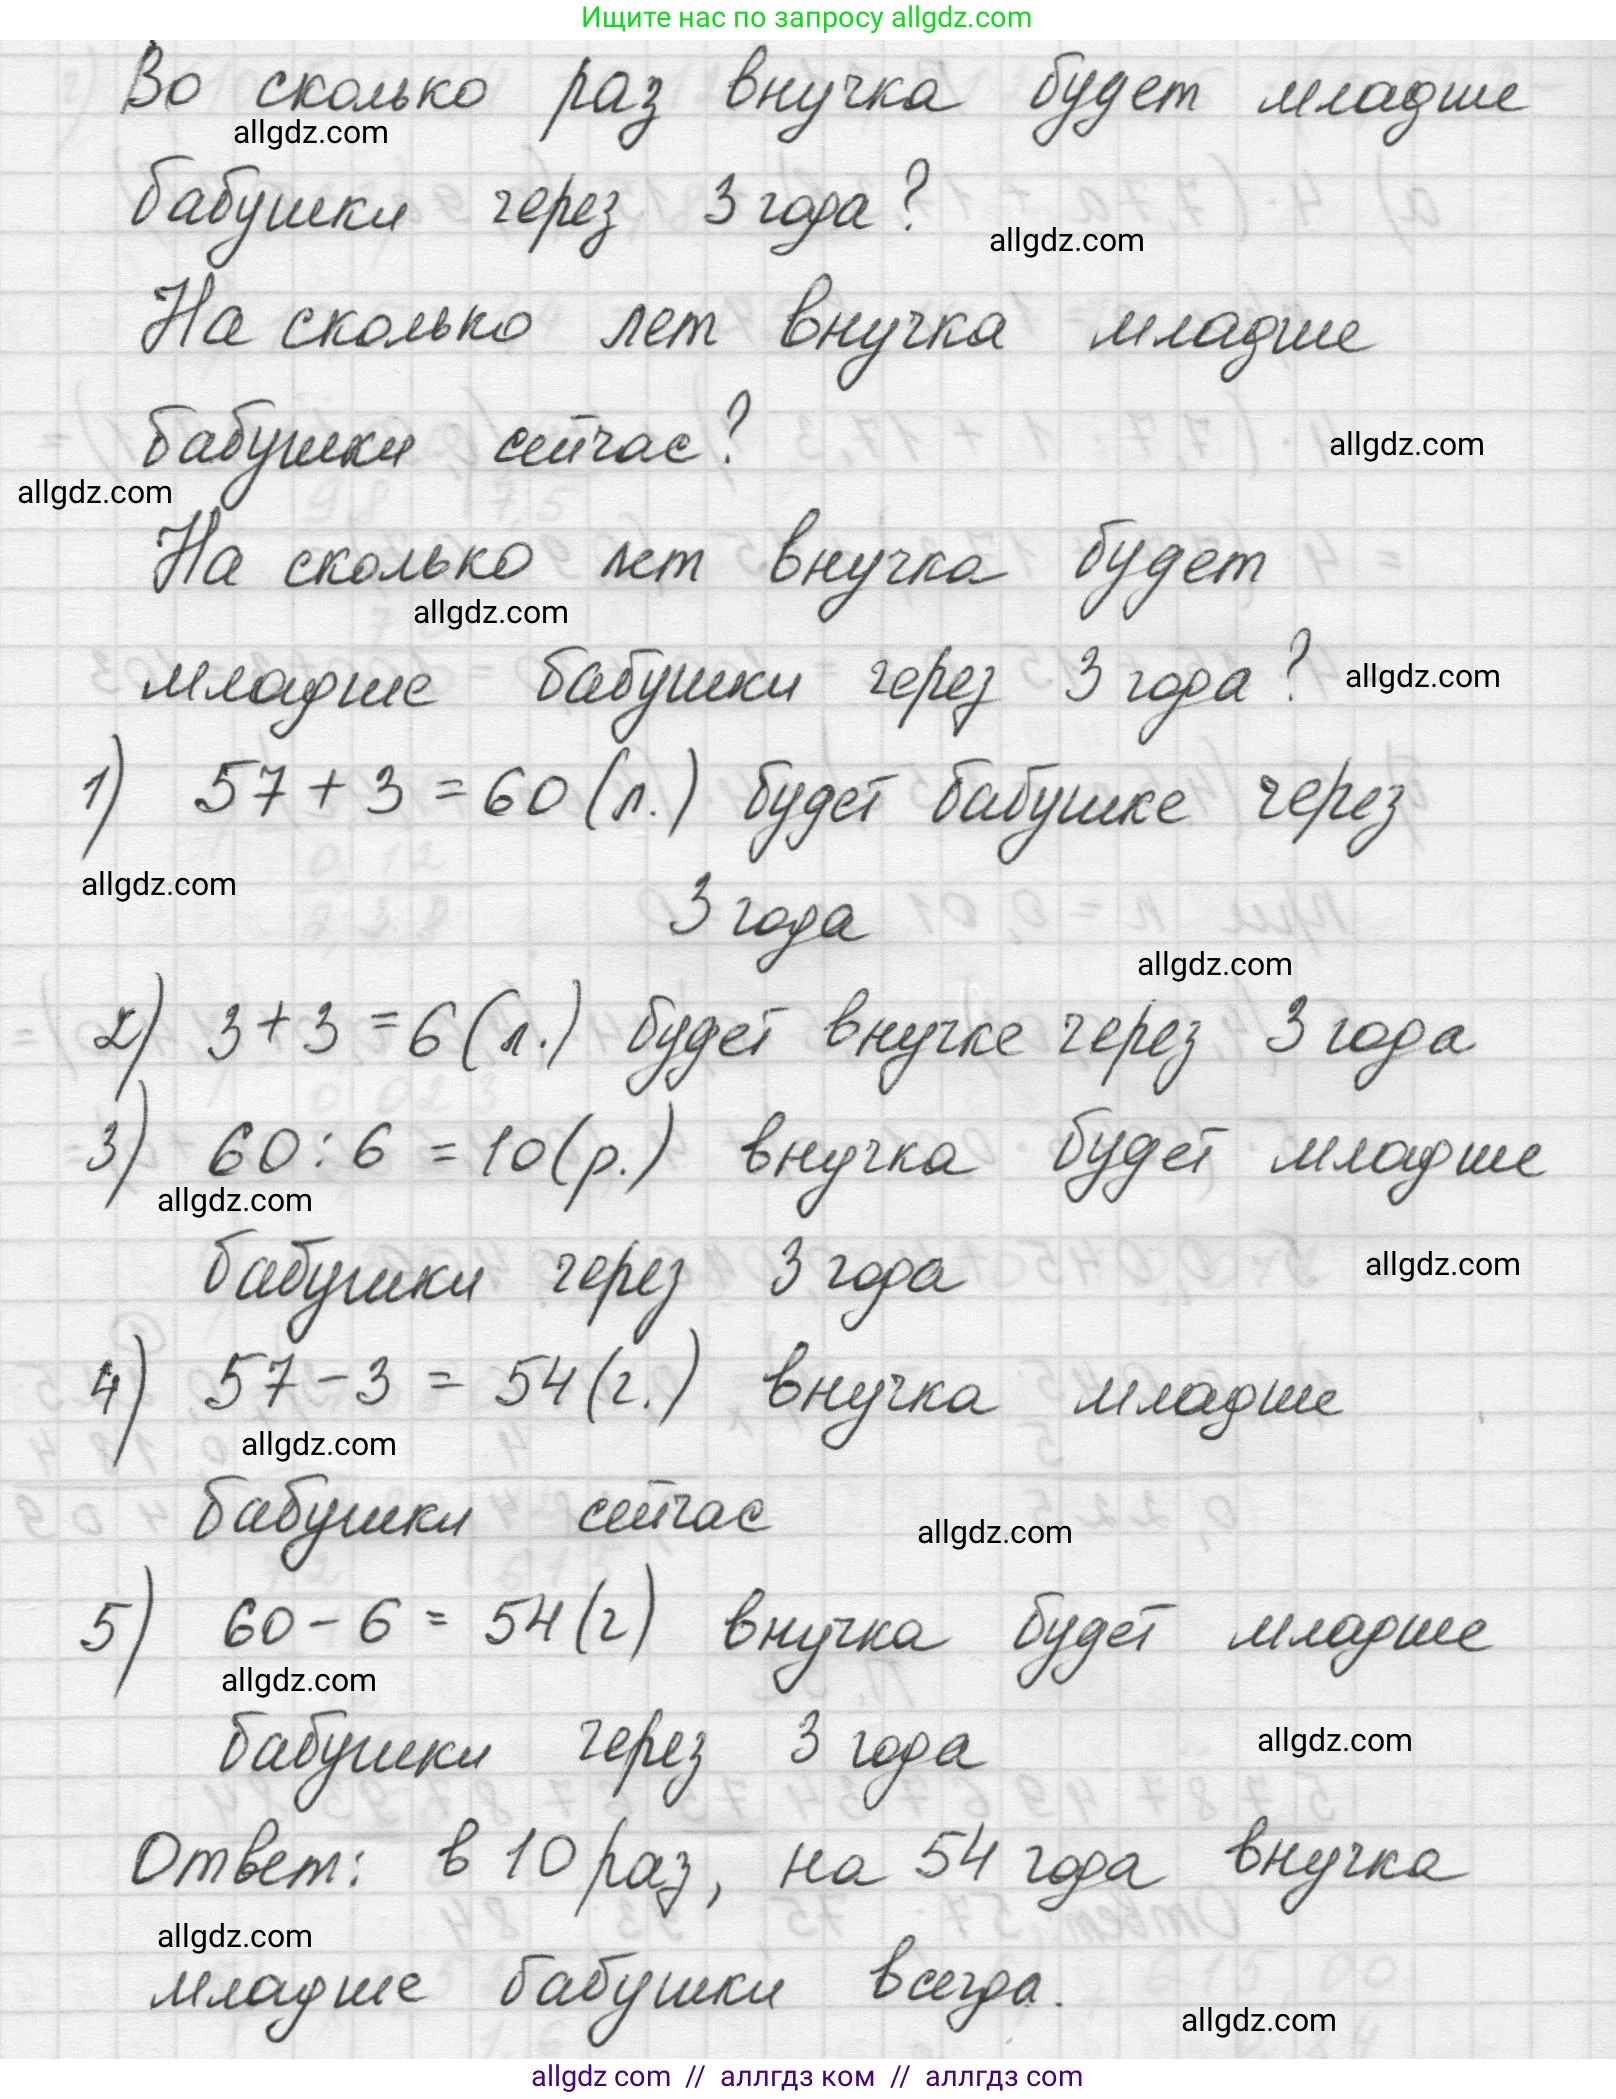 Ищите нас по запросу allgdz.com
Во сколько раз внучка будет младше
allgdz.com
бабушки через 3 года?
allgdz.com
На сколько лет внучка младше
бабушки сейчас?
allgdz.com
allgdz.com
На сколько лет внучка будет
allgdz.com
младше бабушки через 3 года?
allgdz.com
1) 57 + 3 = 60 (л.) будет бабушке через
allgdz.com
3 года
allgdz.com
2) 3 + 3 = 6 (л.) будет внучке через 3 года
3) 60 : 6 = 10 (р.) внучка будет младше
allgdz.com
бабушки через 3 года
allgdz.com
4) 57 - 3 = 54 (г.) внучка младше
allgdz.com
бабушки сейчас
allgdz.com
5) 60 - 6 = 54 (г) внучка будет младше
allgdz.com
бабушки через 3 года
allgdz.com
Ответ: в 10 раз, на 54 года внучка
allgdz.com
младше бабушки всегда.
allgdz.com
allgdz.com // аллгдз ком // аллгдз com